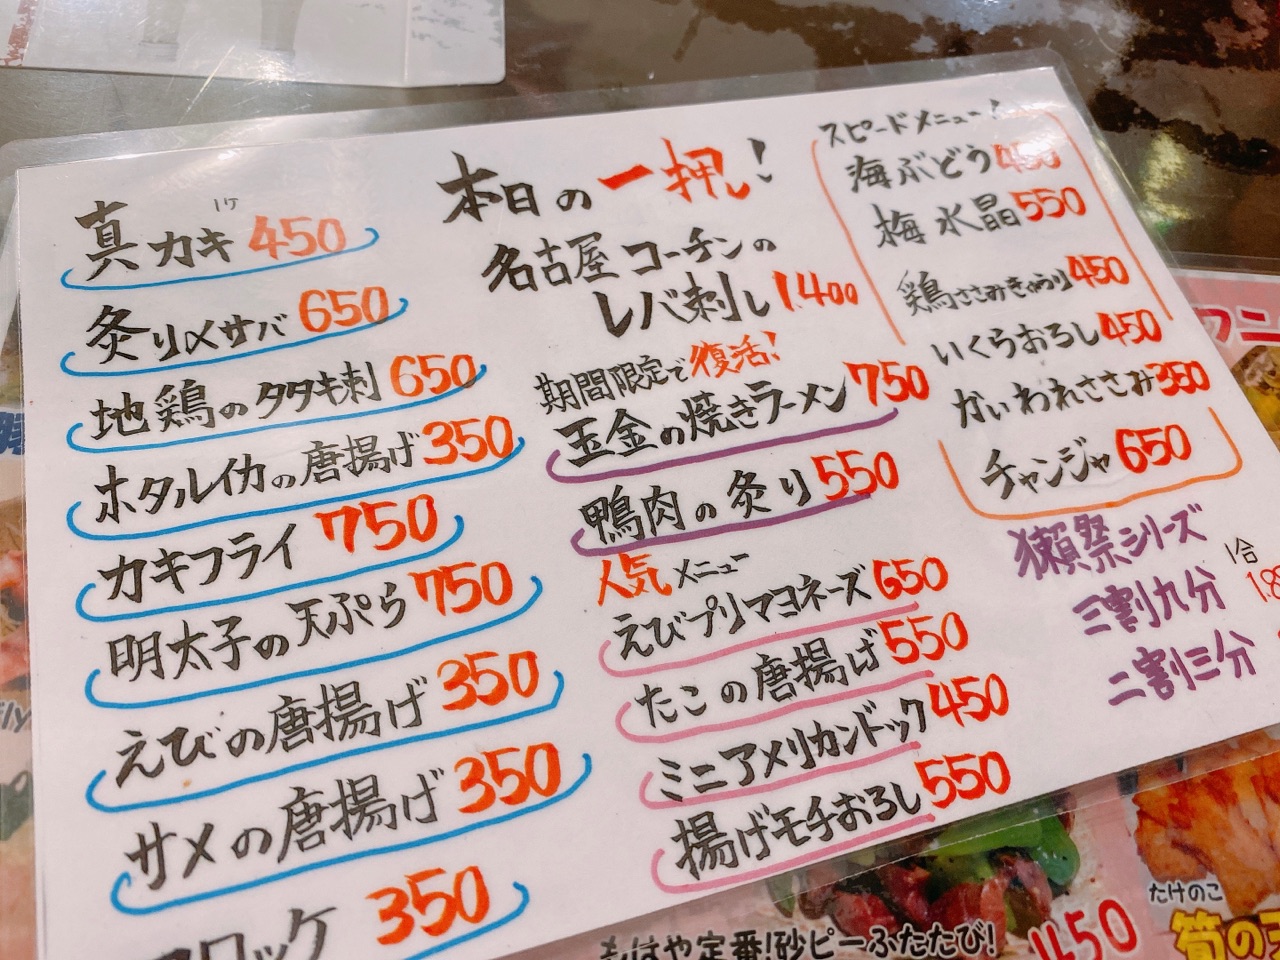 本日の一押し!
真カキ 1ケ 450
炙り〆サバ 650
地鶏のタタキ刺 650
ホタルイカの唐揚げ 350
カキフライ 750
明太子の天ぷら 750
えびの唐揚げ 350
サメの唐揚げ 350
ロッケ 350
名古屋コーチンの
レバ刺し 1400
期間限定で復活!
玉金の焼きラーメン 750
鴨肉の炙り 550
人気メニュー
えびプリマヨネーズ 650
たこの唐揚げ 550
ミニアメリカンドック 450
揚げモチおろし 550
スピードメニュー!
海ぶどう 450
梅水晶 550
鶏ささみきゅうり 450
いくらおろし 450
かいわれささみ 350
チャンジャ 650
獺祭シリーズ
1合
三割九分
二割三分
もはや定番!砂ピーふたたび!
450
たけのこ
筍の天